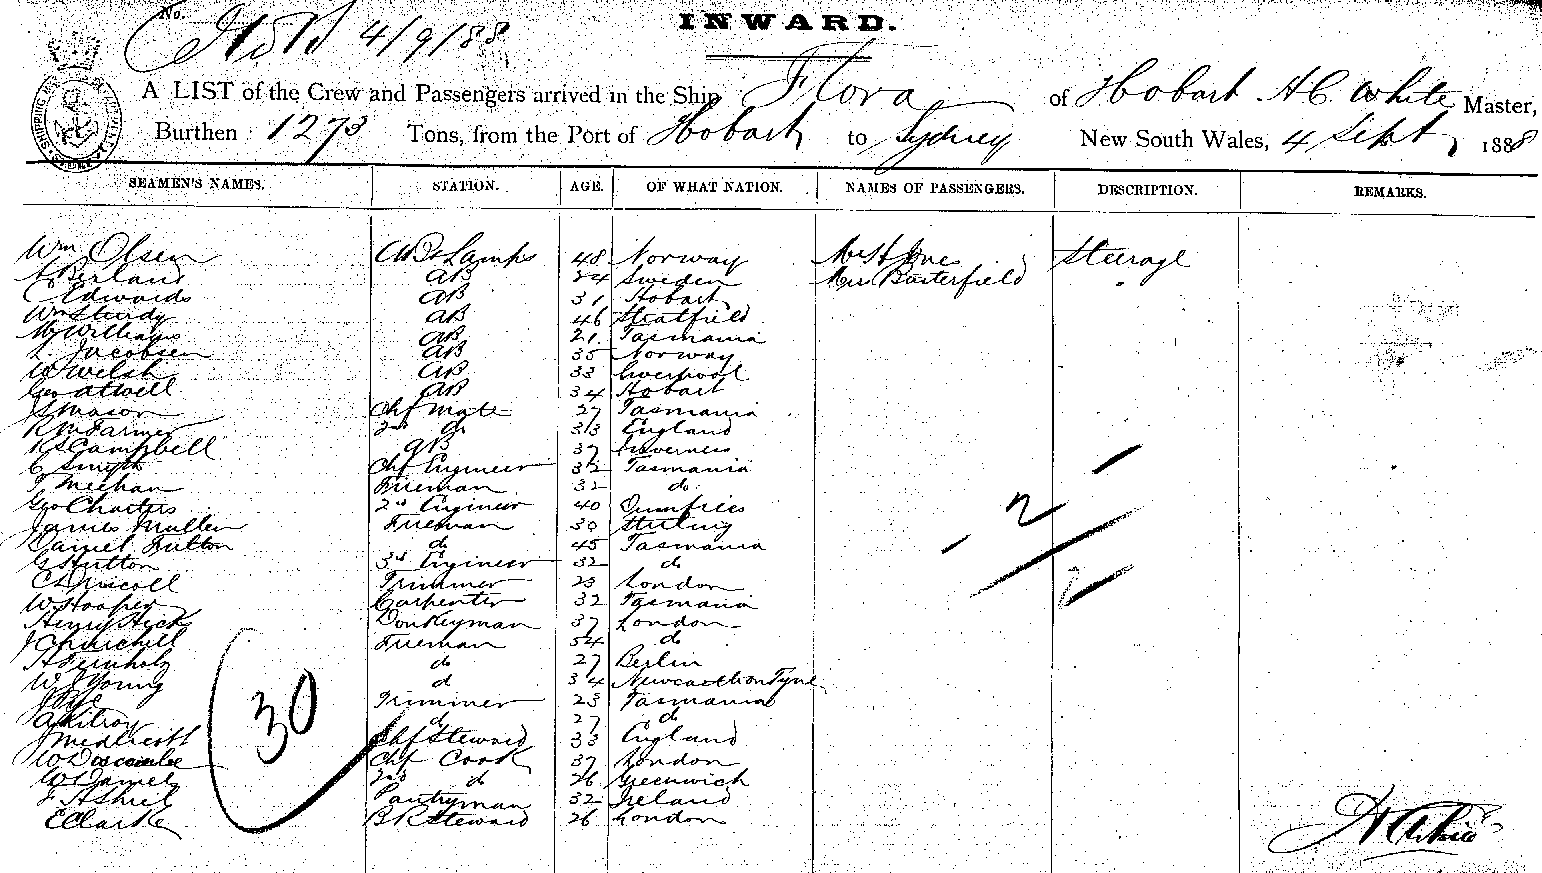 No.
4/9/88
INWARD.
A LIST of the Crew and Passengers arrived in the Ship Flora of Hobart A C White Master,
Burthen 1273 Tons, from the Port of Hobart to Sydney New South Wales, 4 Sept, 1888
SEAMEN'S NAMES. STATION. AGE. OF WHAT NATION. NAMES OF PASSENGERS. DESCRIPTION. REMARKS.
Wm Olsen AB & Lamps 48 Norway Mrs H Jones Steerage
Berland AB 24 Sweden Mrs Basterfield "
C Edwards AB 31 Hobart
Wm Sturdy AB 46 Stratfield
My Williams AB 21 Tasmania
L Jacobsen AB 35 Norway
W Welsh AB 33 Liverpool
Geo Atwell AB 34 Hobart
J S Mason Chf Mate 27 Tasmania
R McFarmer 2nd do 313 England
R S Campbell AB 37 Inverness
C Smyth Chf Engineer 32 Tasmania
T Meehan Fireman 32 do
Geo Charters 2nd Engineer 40 Dumfries
James Mullen Fireman 30 Sterling
Daniel Fulton do 45 Tasmania
G Hutton 3rd Engineer 32 do
C Driscoll Trimmer 23 London
W Hooper Carpenter 32 Tasmania
Henry Hick Donkeyman 37 London
J Churchill Fireman 54 do
A Fernholz do 27 Berlin
W J Young d 34 Newcastle on Tyne
Trimmer 23 Tasmania
A Kilroy d 27 do
J Medlicott Chf Steward 33 England
W Duscombe Chf Cook 37 London
W Daniels 2nd d 26 Greenwich
J A Shiel Pantryman 32 Ireland
E Clarke B R Steward 26 London
2
2
30